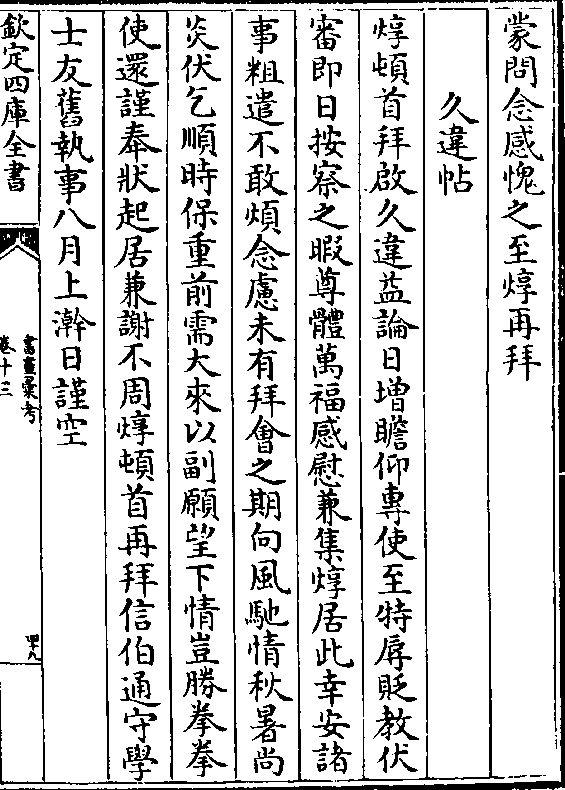 蒙問念感愧之至焞再拜
久違帖
焞頓首拜啟久違益論日增瞻仰專使至特辱貶教伏
審即日按察之暇尊體萬福感慰兼集焞居此幸安諸
事粗遣不敢煩念慮未有拜會之期向風馳情秋暑尚
炎伏乞順時保重前需大來以副願望下情豈勝拳拳
使還謹奉狀起居兼謝不周焞頓首再拜信伯通守學
士友舊執事八月上澣日謹空
欽定四庫全書
書畫彙考
卷十三
四十九